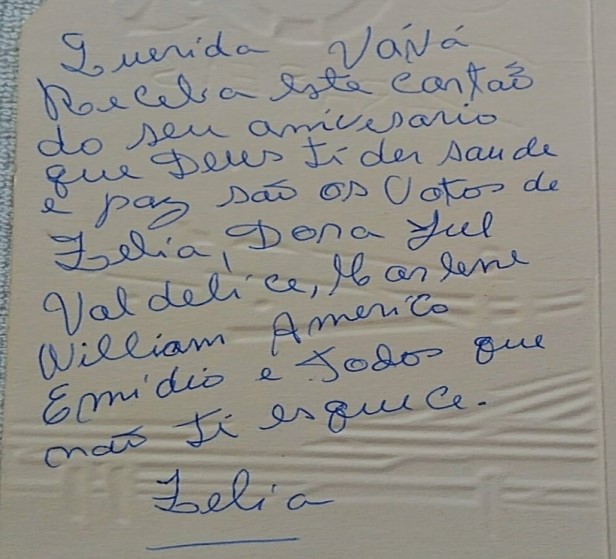 Querida Vává
Receba este cartaõ
do seu anivesario
que Deus ti der saude
e paz são os Votos de
Zelia, Dona Jul
Valdelice, Marlene
William Americo
Emidio e todos que
naõ ti esquece.
Zelia